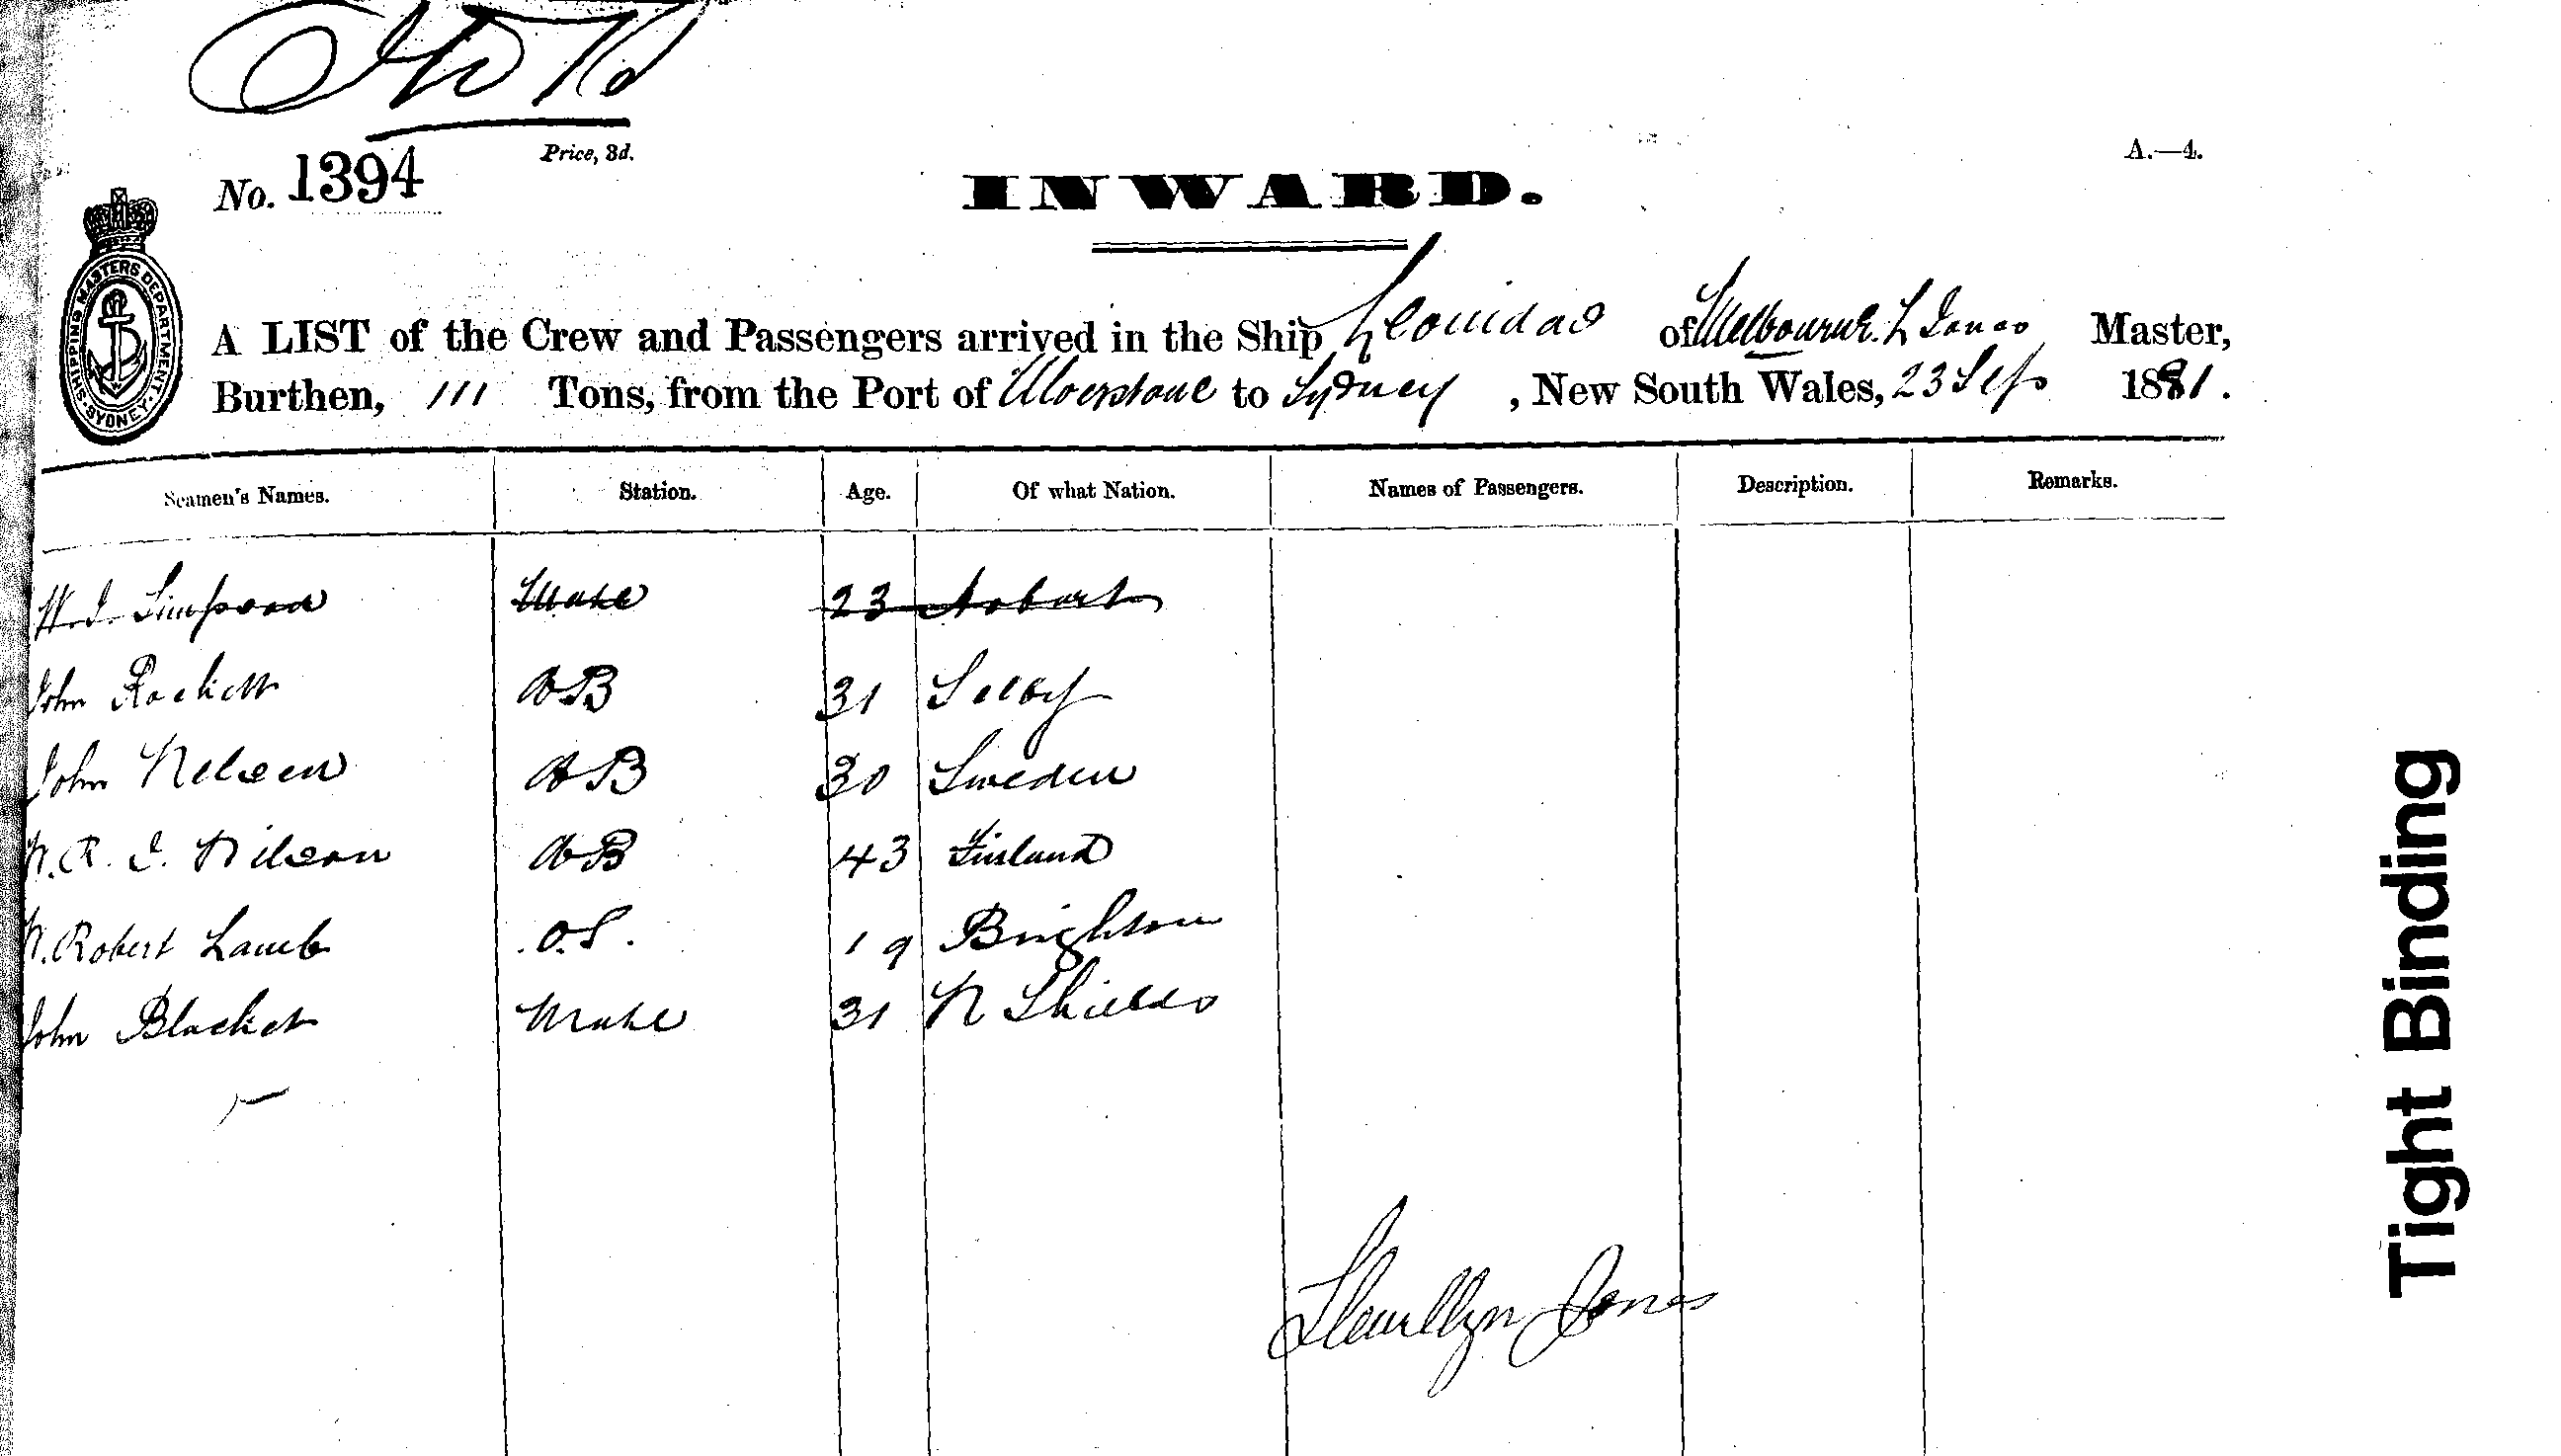 Price, 3d.
No. 1394
A.—4.
INWARD.
SHIPPING MASTERS DEPARTMENT · SYDNEY ·
A LIST of the Crew and Passengers arrived in the Ship Leonidas of Melbourne. L Jones Master,
Burthen, 111 Tons, from the Port of Ulverstone to Sydney , New South Wales, 23 Sep 1881.
Seamen's Names. Station. Age. Of what Nation. Names of Passengers. Description. Remarks.
W. J. Simpson Mate 23 Hobart
John Rockett AB 31 Selby
John Nelsen AB 30 Sweden
N. R. J. Nilson AB 43 Finland
W. Robert Lamb O.S. 19 Brighton
John Blacket Mate 31 N Shields
Llewellyn Jones
Tight Binding